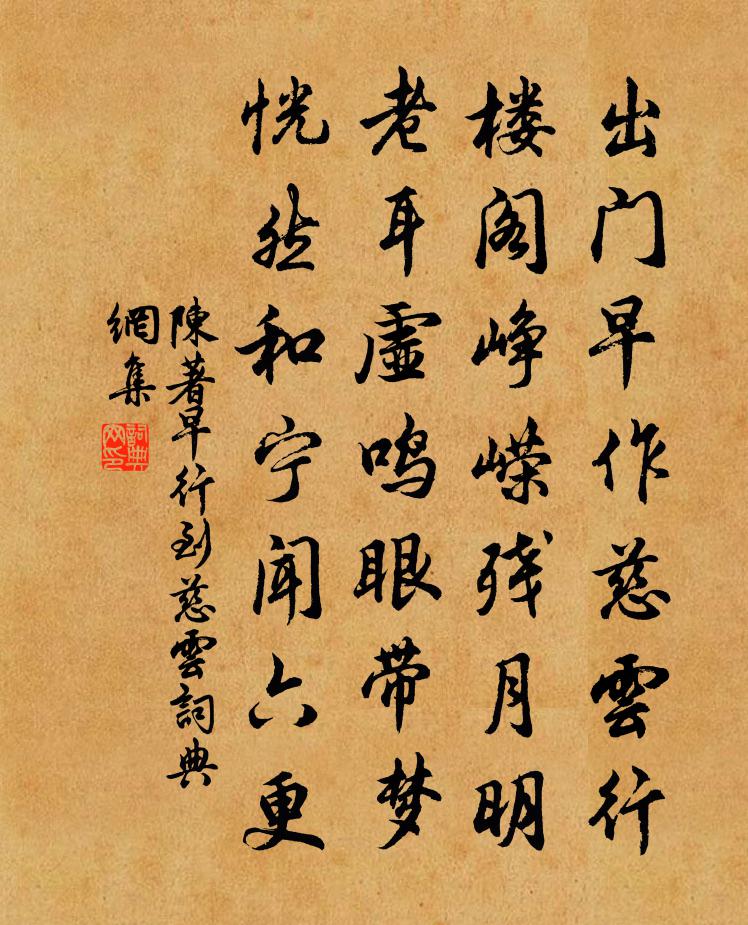 出门早作慈雲行
楼阁峥嵘残月明
老耳虚鸣眼带梦
恍然和宁闻六更
陳著早行到慈雲詞典
網集
詞典
网印